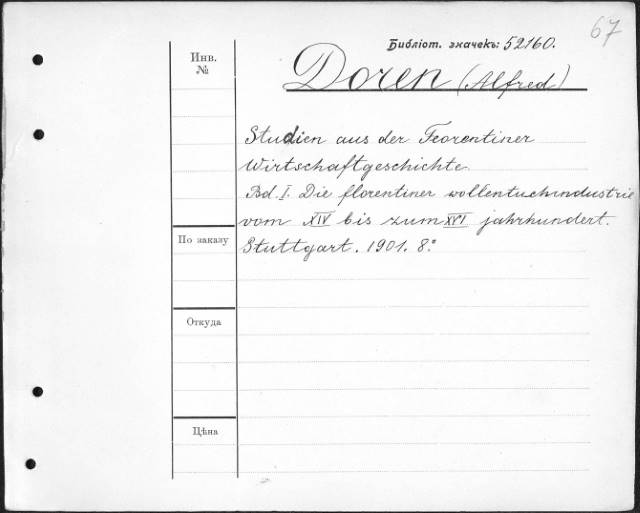 67
Библіот. значекъ: 52160.
Инв.
№
Doren (Alfred)
Studien aus der Florentiner
Wirtschaftgeschichte.
Bd. I. Die florentiner wollentuchindustrie
vom XIV bis zum XVI jahrhundert.
По заказу
Stuttgart. 1901. 8º
Откуда
Цѣна